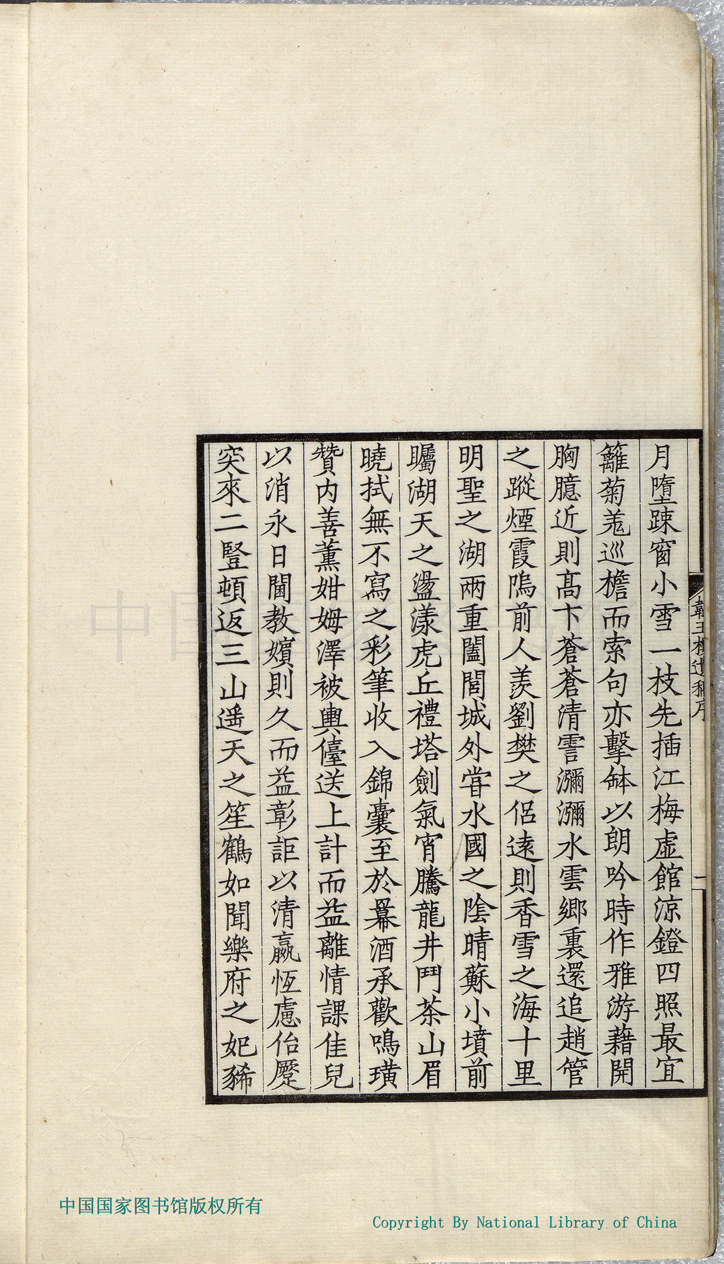 月墮疎窗小雪一枝先插江梅虛館涼鐙四照最宜
籬菊羗巡檐而索句亦擊缽以朗吟時作雅游藉開
胸臆近則高卞蒼蒼清霅瀰瀰水雲鄉裏還追趙管
之蹤煙霞隖前人羨劉樊之侶遠則香雪之海十里
明聖之湖兩重闔閭城外嘗水國之陰晴蘇小墳前
矚湖天之盪漾虎丘禮塔劍氣宵騰龍井鬥茶山眉
曉拭無不寫之彩筆收入錦囊至於冪酒承歡鳴璜
贊内善薰娸姆澤被輿儓送上計而益離情課佳兒
以消永日閫教嬪則久而益彰詎以清羸恆慮佁蹷
突來二豎頓返三山遥天之笙鶴如聞樂府之妃豨
韞玉樓遺稿序
二
中国国家图书馆
中国国家图书馆版权所有
Copyright By National Library of China